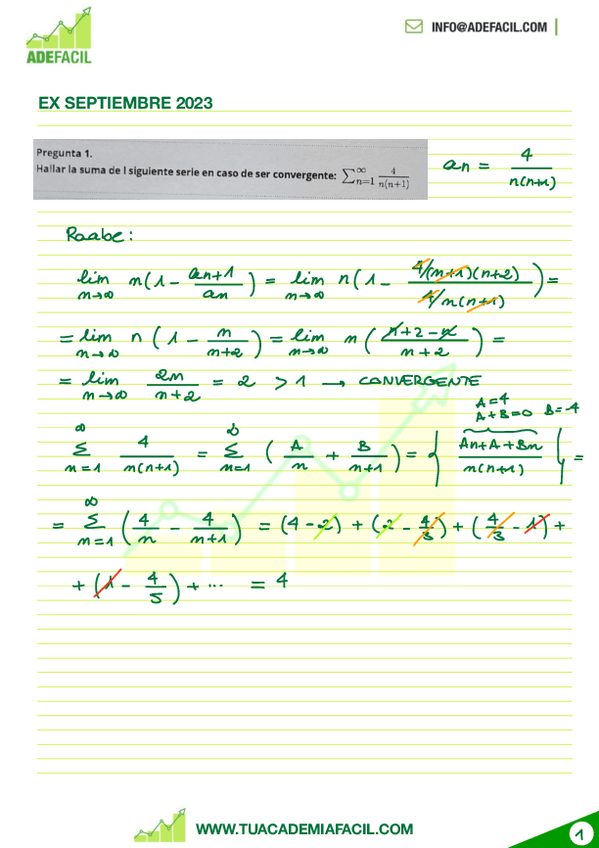 ADEFACIL
INFO@ADEFACIL.COM
EX SEPTIEMBRE 2023
Pregunta 1.
Hallar la suma de l siguiente serie en caso de ser convergente: ∑_{n=1}^{∞} 4/(n(n+1))
an = 4/(n(n+1))
Raabe:
lim_{n→∞} n(1 - an+1/an) = lim_{n→∞} n(1 - (4/(n+1)(n+2))/(4/n(n+1))) =
= lim_{n→∞} n(1 - n/(n+2)) = lim_{n→∞} n((n+2-n)/(n+2)) =
= lim_{n→∞} 2n/(n+2) = 2 > 1 → CONVERGENTE
A=4
A+B=0 B=-4
∑_{n=1}^{∞} 4/(n(n+1)) = ∑_{n=1}^{∞} (A/n + B/(n+1)) = { (An+A+Bn)/(n(n+1)) } =
= ∑_{n=1}^{∞} (4/n - 4/(n+1)) = (4-2) + (2 - 4/3) + (4/3 - 1) +
+ (1 - 4/5) + ... = 4
WWW.TUACADEMIAFACIL.COM
1